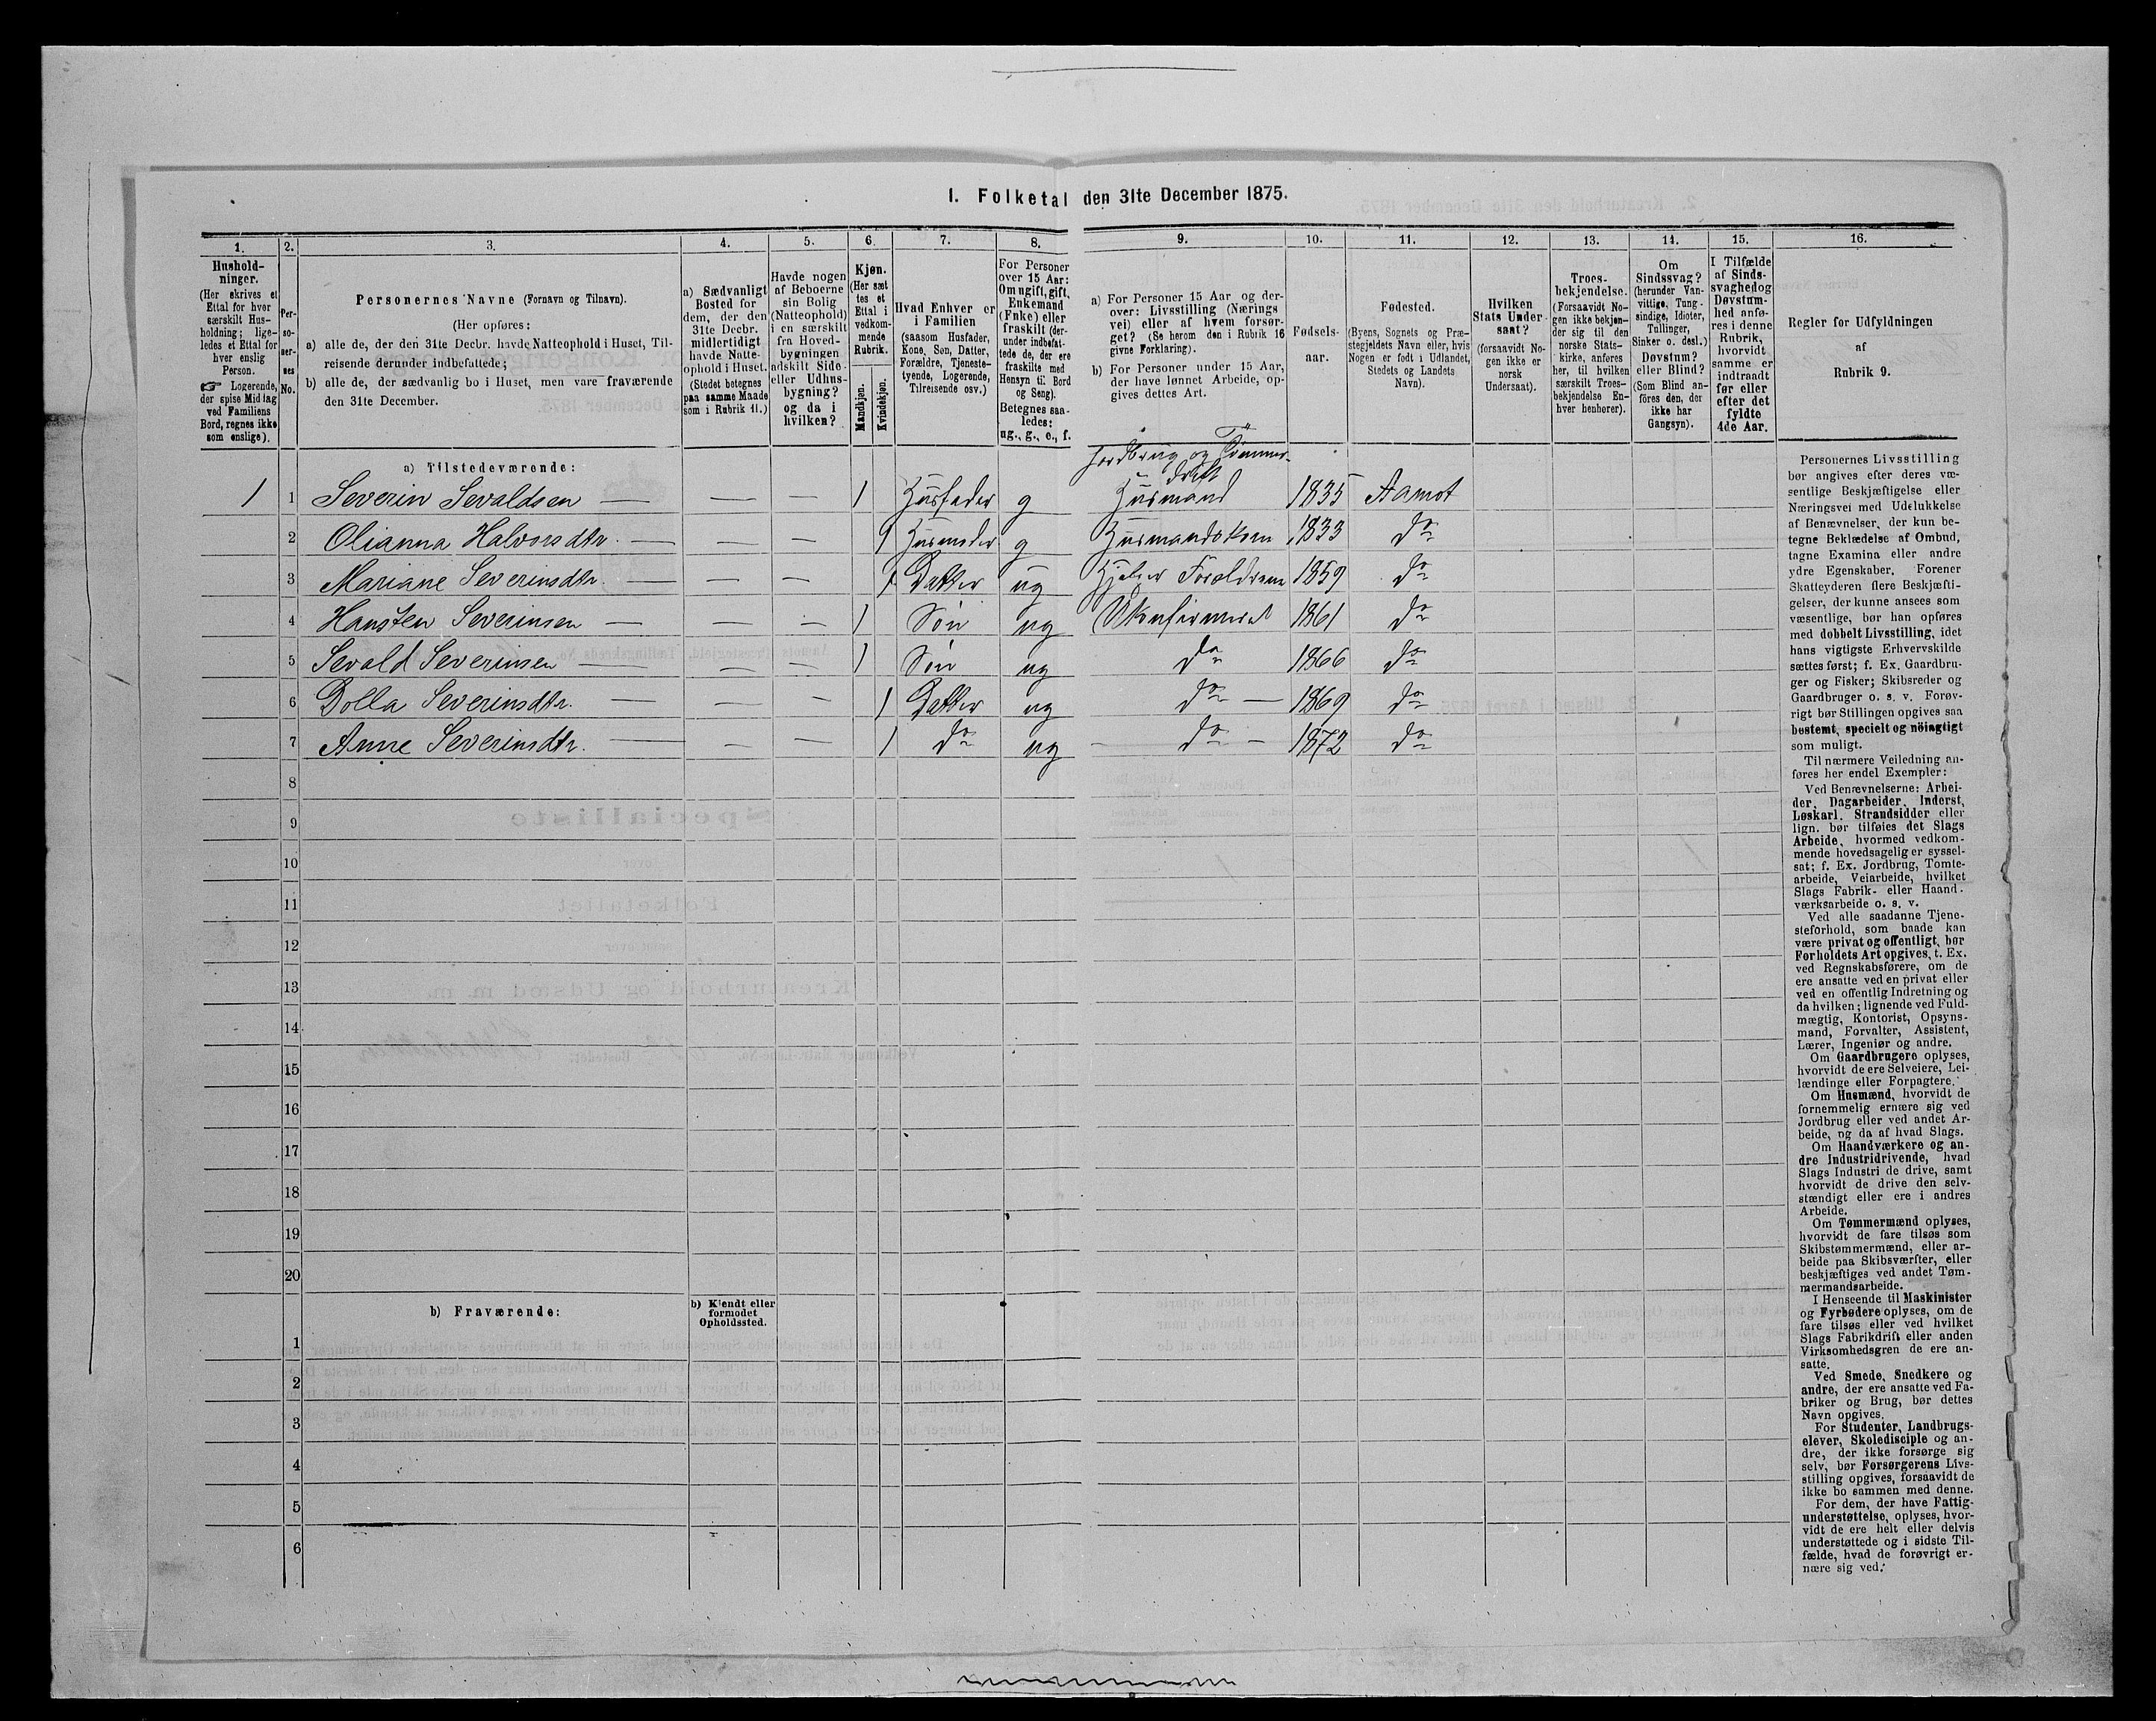 1. Folketal den 31te December 1875.
1. 2. 3. 4. 5. 6. 7. 8. 9. 10. 11. 12. 13. 14. 15. 16.
Hushold-
ninger.
(Her skrives et
Ettal for hver
særskilt Hus-
holdning; lige-
ledes et Ettal for
hver enslig
Person.
☞ Logerende,
der spise Middag
ved Familiens
Bord, regnes ikke
som enslige).
Per-
so-
ner-
nes
No.
Personernes Navne (Fornavn og Tilnavn).
(Her opføres:
a) alle de, der den 31te Decbr. havde Natteophold i Huset, Til-
reisende derunder indbefattede;
b) alle de, der sædvanlig bo i Huset, men vare fraværende
den 31te December.
a) Sædvanligt
Bosted for
dem, der den
31te Decbr.
midlertidigt
havde Natte-
ophold i Huset.
(Stedet betegnes
paa samme Maade
som i Rubrik 11.)
Havde nogen
af Beboerne
sin Bolig
(Natteophold)
i en særskilt
fra Hoved-
bygningen
adskilt Side-
eller Udhus-
bygning?
og da i
hvilken?
Kjøn.
(Her sæt
tes et
Ettal i
vedkom-
mende
Rubrik.
Mandkjøn.
Kvindekjøn.
Hvad Enhver er
i Familien
(saasom Husfader,
Kone, Søn, Datter,
Forældre, Tjeneste-
tyende, Logerende,
Tilreisende osv.)
For Personer
over 15 Aar:
Om ugift, gift,
Enkemand
(Enke) eller
fraskilt (der-
under indbefat-
tede de, der ere
fraskilte med
Hensyn til Bord
og Seng).
Betegnes saa-
ledes:
ug., g., e., f.
a) For Personer 15 Aar og der-
over: Livsstilling (Nærings
vei) eller af hvem forsør-
get? (Se herom den i Rubrik 16
givne Forklaring).
b) For Personer under 15 Aar,
der have lønnet Arbeide, op-
gives dettes Art.
Fødsels-
aar.
Fødested.
(Byens, Sognets og Præ-
stegjeldets Navn eller, hvis
Nogen er født i Udlandet,
Stedets og Landets
Navn).
Hvilken
Stats Under-
saat?
(forsaavidt No-
gen ikke er
norsk
Undersaat).
Troes-
bekjendelse.
(Forsaavidt No-
gen ikke bekjen-
der sig til den
norske Stats-
kirke, anføres
her, til hvilken
særskilt Troes-
bekjendelse En-
hver henhører).
Om
Sindssvag?
(herunder Van-
vittige, Tung-
sindige, Idioter,
Tullinger,
Sinker o. desl.)
Døvstum?
eller Blind?
(Som Blind an-
føres den, der
ikke har
Gangsyn).
I Tilfælde
af Sinds-
svaghed og
Døvstum-
hed anfø-
res i denne
Rubrik,
hvorvidt
samme er
indtraadt
før eller
efter det
fyldte
4de Aar.
Regler for Udfyldningen
af
Rubrik 9.
a) Tilstedeværende:
Jordbrug og Tömmer-
drift
1 1 Severin Sevaldsen — — — 1 Husfader g Husmand 1835 Aamot
2 Olianna Halvorsdtr. — — — 1 Husmoder g Husmandskone 1833 do
3 Mariane Severinsdtr. — — — 1 Datter ug Hjelper Forældrene 1859 do
4 Hansten Severinsen — — — 1 Sön ug Ukonfirmeret 1861 do
5 Sevald Severinsen — — — 1 Sön ug do 1866 do
6 Dolla Severinsdtr. — — — 1 Datter ug do — 1869 do
7 Anne Severinsdtr. — — — 1 do ug — do — 1872 do
8
9
10
11
12
13
14
15
16
17
18
19
20
b) Fraværende:
b) Kjendt eller
formodet
Opholdssted.
1
2
3
4
5
6
Personernes Livsstilling
bør angives efter deres væ-
sentlige Beskjæftigelse eller
Næringsvei med Udelukkelse
af Benævnelser, der kun be-
tegne Beklædelse af Ombud,
tagne Examina eller andre
ydre Egenskaber. Forener
Skatteyderen flere Beskjæfti-
gelser, der kunne ansees som
væsentlige, bør han opføres
med dobbelt Livsstilling, idet
hans vigtigste Erhvervskilde
sættes først; f. Ex. Gaardbru-
ger og Fisker; Skibsreder og
Gaardbruger o. s. v. Forøv-
rigt bør Stillingen opgives saa
bestemt, specielt og nöiagtigt
som muligt.
Til nærmere Veiledning an-
føres her endel Exempler:
Ved Benævnelserne: Arbei-
der, Dagarbeider, Inderst,
Løskarl, Strandsidder eller
lign. bør tilføies det Slags
Arbeide, hvormed vedkom-
mende hovedsagelig er syssel-
sat; f. Ex. Jordbrug, Tomte-
arbeide, Veiarbeide, hvilket
Slags Fabrik- eller Haand-
værksarbeide o. s. v.
Ved alle saadanne Tjene-
steforhold, som baade kan
være privat og offentligt, bør
Forholdets Art opgives, t. Ex.
ved Regnskabsførere, om de
ere ansatte ved en privat eller
ved en offentlig Indretning og
da hvilken; lignende ved Fuld-
mægtig, Kontorist, Opsyns-
mand, Forvalter, Assistent,
Lærer, Ingeniør og andre.
Om Gaardbrugere oplyses,
hvorvidt de ere Selveiere, Lei-
lændinge eller Forpagtere.
Om Husmænd, hvorvidt de
fornemmelig ernære sig ved
Jordbrug eller ved andet Ar-
beide, og da af hvad Slags.
Om Haandværkere og an-
dre Industridrivende, hvad
Slags Industri de drive, samt
hvorvidt de drive den selv-
stændigt eller ere i andres
Arbeide.
Om Tømmermænd oplyses,
hvorvidt de fare tilsøs som
Skibstømmermænd, eller ar-
beide paa Skibsværfter, eller
beskjæftiges ved andet Tøm-
mermandsarbeide.
I Henseende til Maskinister
og Fyrbødere oplyses, om de
fare tilsøs eller ved hvilket
Slags Fabrikdrift eller anden
Virksomhedsgren de ere an-
satte.
Ved Smede, Snedkere og
andre, der ere ansatte ved Fa-
briker og Brug, bør dettes
Navn opgives.
For Studenter, Landbrugs-
elever, Skoledisciple og an-
dre, der ikke forsørge sig
selv, bør Forsørgerens Livs-
stilling opgives, forsaavidt de
ikke bo sammen med denne.
For dem, der have Fattig-
understøttelse, oplyses, hvor-
vidt de ere helt eller delvis
understøttede og i sidste Til-
fælde, hvad de forøvrigt er-
nære sig ved.